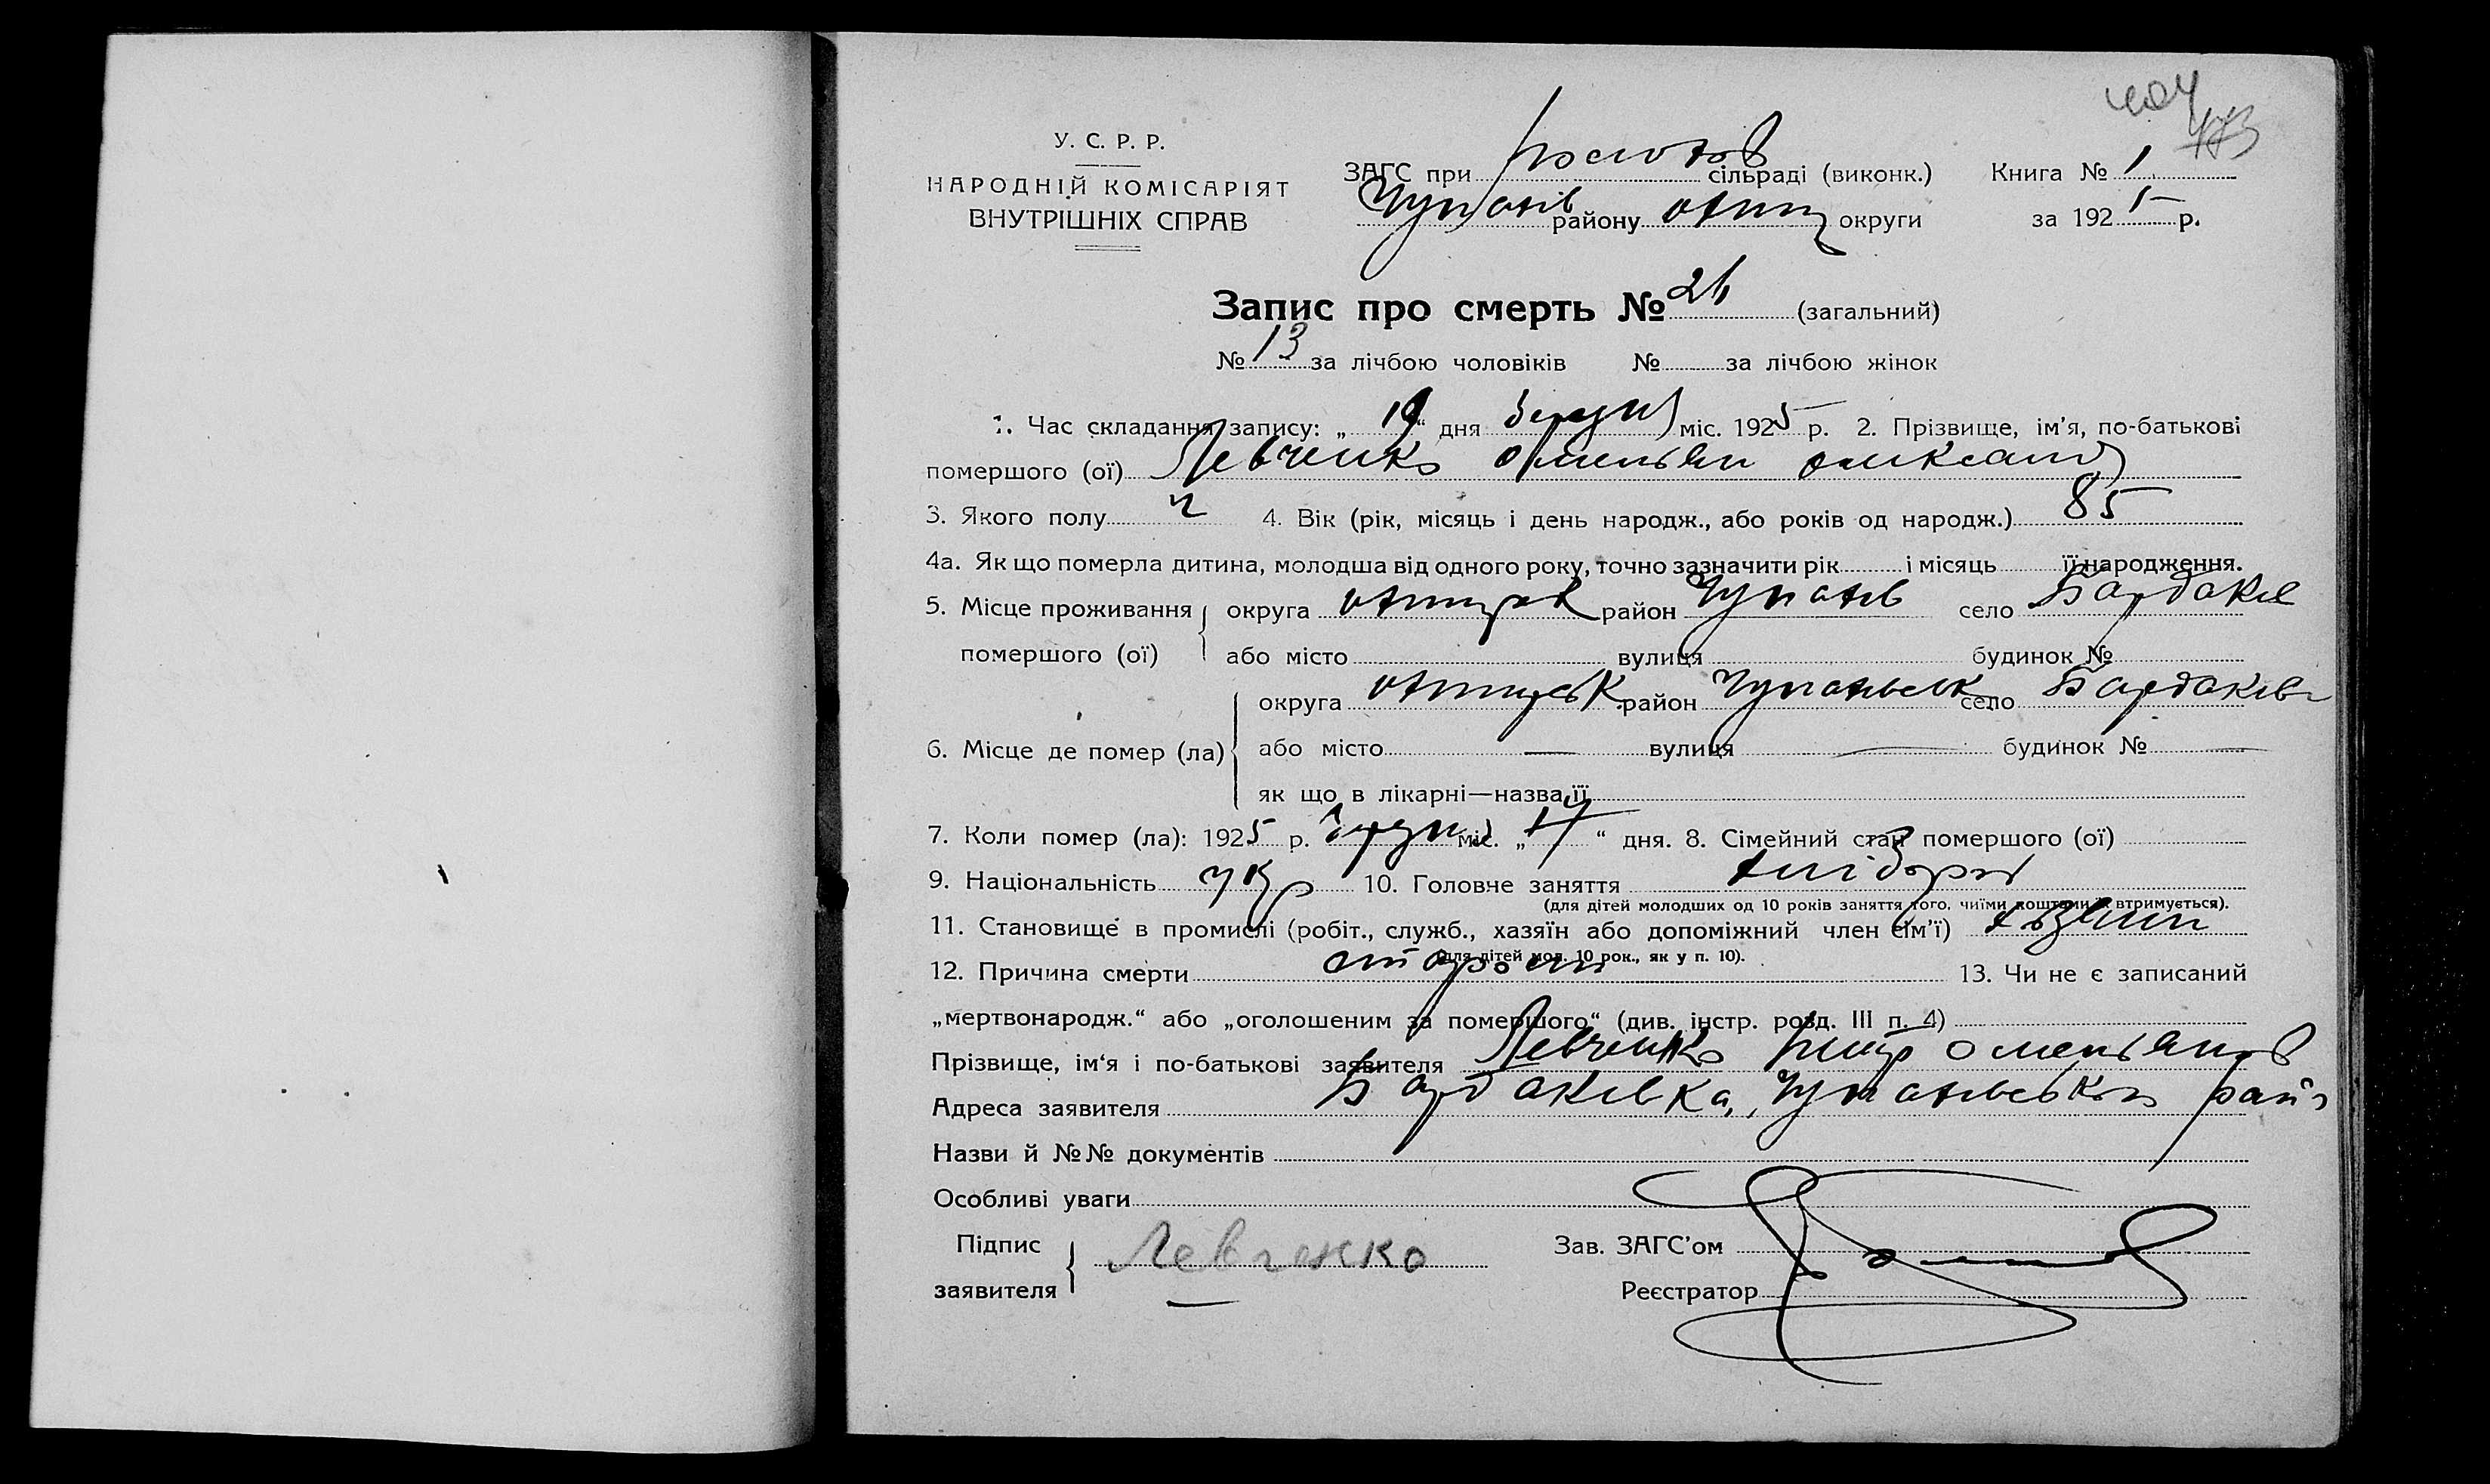 404
473
У. С. Р. Р.
НАРОДНІЙ КОМІСАРІЯТ
ВНУТРІШНІХ СПРАВ
ЗАГС при сільраді (виконк.) Книга № 1
району округи за 1925 р.
Запис про смерть № 26 (загальний)
№ 13 за лічбою чоловіків № за лічбою жінок
1. Час складання запису: „19“ дня міс. 1925 р. 2. Прізвище, ім'я, по-батькові
помершого (ої) Левченко Омельян Олександ
3. Якого полу ч 4. Вік (рік, місяць і день народж., або років од народж.) 85
4а. Як що померла дитина, молодша від одного року, точно зазначити рік і місяць її народження.
5. Місце проживання округа район Чупахів село Бардаків
помершого (ої) або місто вулиця будинок №
округа район Чупахівськ село Бардаківк
6. Місце де помер (ла) або місто — вулиця — будинок № —
як що в лікарні—назва її
7. Коли помер (ла): 1925 р. міс. „17“ дня. 8. Сімейний стан помершого (ої)
9. Національність укр 10. Головче заняття хлібороб
(для дітей молодших од 10 років заняття того, чиїми коштами їх втримується).
11. Становище в промислі (робіт., служб., хазяїн або допоміжний член сім'ї) хазяин
(для дітей мол. 10 рок., як у п. 10).
12. Причина смерти старост 13. Чи не є записаний
„мертвонародж.“ або „оголошеним за помершого“ (див. інстр. розд. III п. 4)
Прізвище, ім'я і по-батькові заявителя Левченко Петр Омельянов
Адреса заявителя Бардаківка, Чупахівського рай
Назви й №№ документів
Особливі уваги
Підпис Левченко Зав. ЗАГС'ом
заявителя Реєстратор